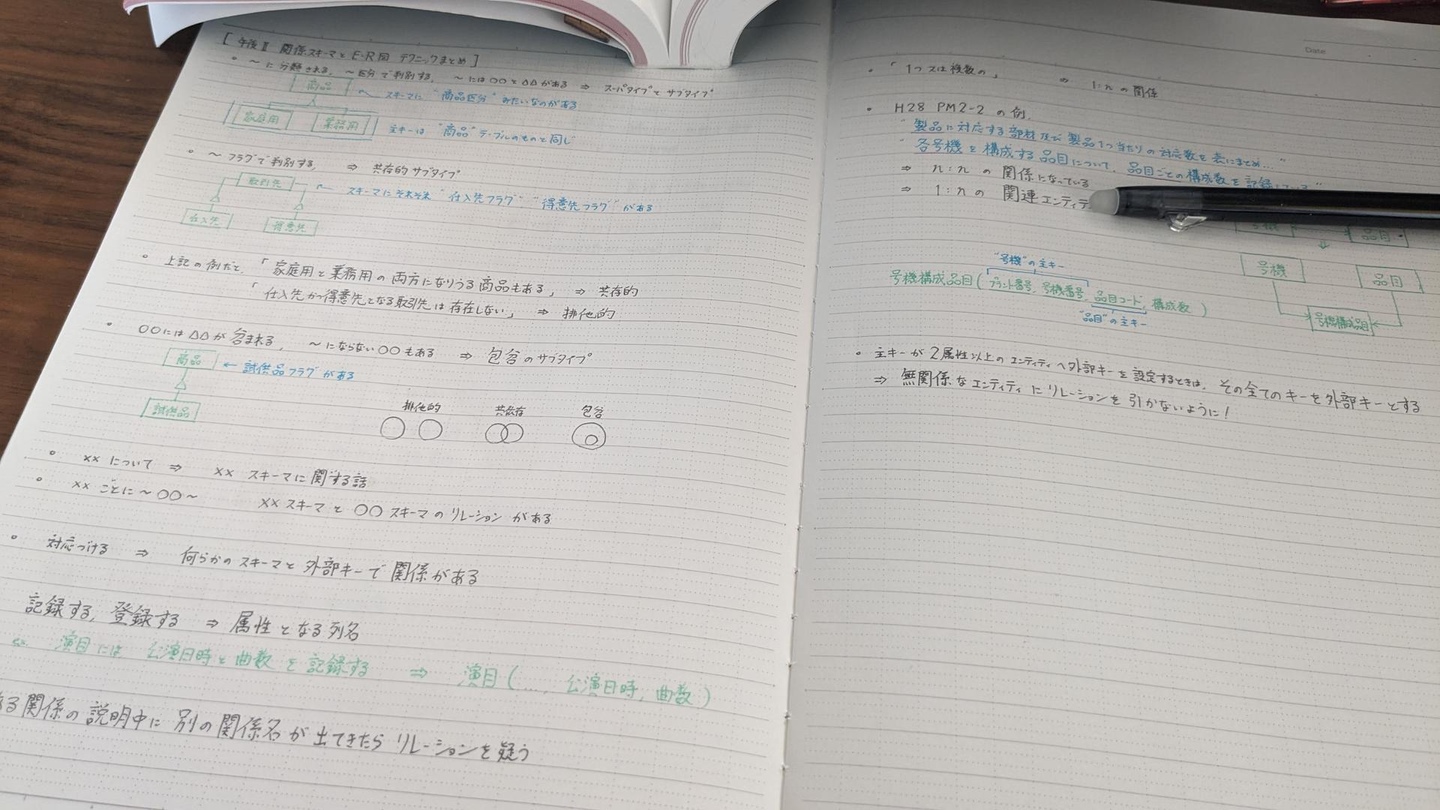 [午後Ⅱ 関係スキーマとE-R図 テクニックまとめ]
。 〜に分類される, 〜区分で判別する, 〜には○○と△△がある ⇒ スーパタイプとサブタイプ
商品
← スキーマに "商品区分" みたいなのがある
家庭用 業務用
主キーは "商品" テーブルのものと同じ
。 〜フラグで判別する ⇒ 共存的サブタイプ
取引先
← スキーマにそれぞれ "仕入先フラグ" "得意先フラグ" がある
仕入先 得意先
。 上記の例だと、「家庭用と業務用の両方になりうる商品もある」 ⇒ 共存的
「仕入先かつ得意先となる取引先は存在しない」 ⇒ 排他的
。 ○○には△△が含まれる, 〜にならない○○もある ⇒ 包含のサブタイプ
商品
← 試供品フラグがある
試供品
排他的 共存 包含
。 ××について ⇒ ××スキーマに関する話
。 ××ごとに〜○○〜 ××スキーマと○○スキーマのリレーションがある
。 対応づける ⇒ 何らかのスキーマと外部キーで関係がある
記録する, 登録する ⇒ 属性となる列名
ex. 演目には 公演日時と曲数を記録する ⇒ 演目(..., 公演日時, 曲数)
る関係の説明中に別の関係名が出てきたらリレーションを疑う
Date
。 「1つ又は複数の」 ⇒ 1:nの関係
。 H28 PM2-2 の例
"製品に対応する部材及び製品1つ当たりの対応数を表にまとめ..."
"各号機を構成する品目について, 品目ごとの構成数を記録している"
⇒ n:nの関係になっている
⇒ 1:nの 関連エンティテ
号機 品目
号機 品目
"号機"の主キー
号機構成品目(プラント番号, 号機番号, 品目コード, 構成数)
"品目"の主キー
号機構成品目
。 主キーが2属性以上のエンティティへ外部キーを設定するときは, その全てのキーを外部キーとする
⇒ 無関係なエンティティにリレーションを引かないように!